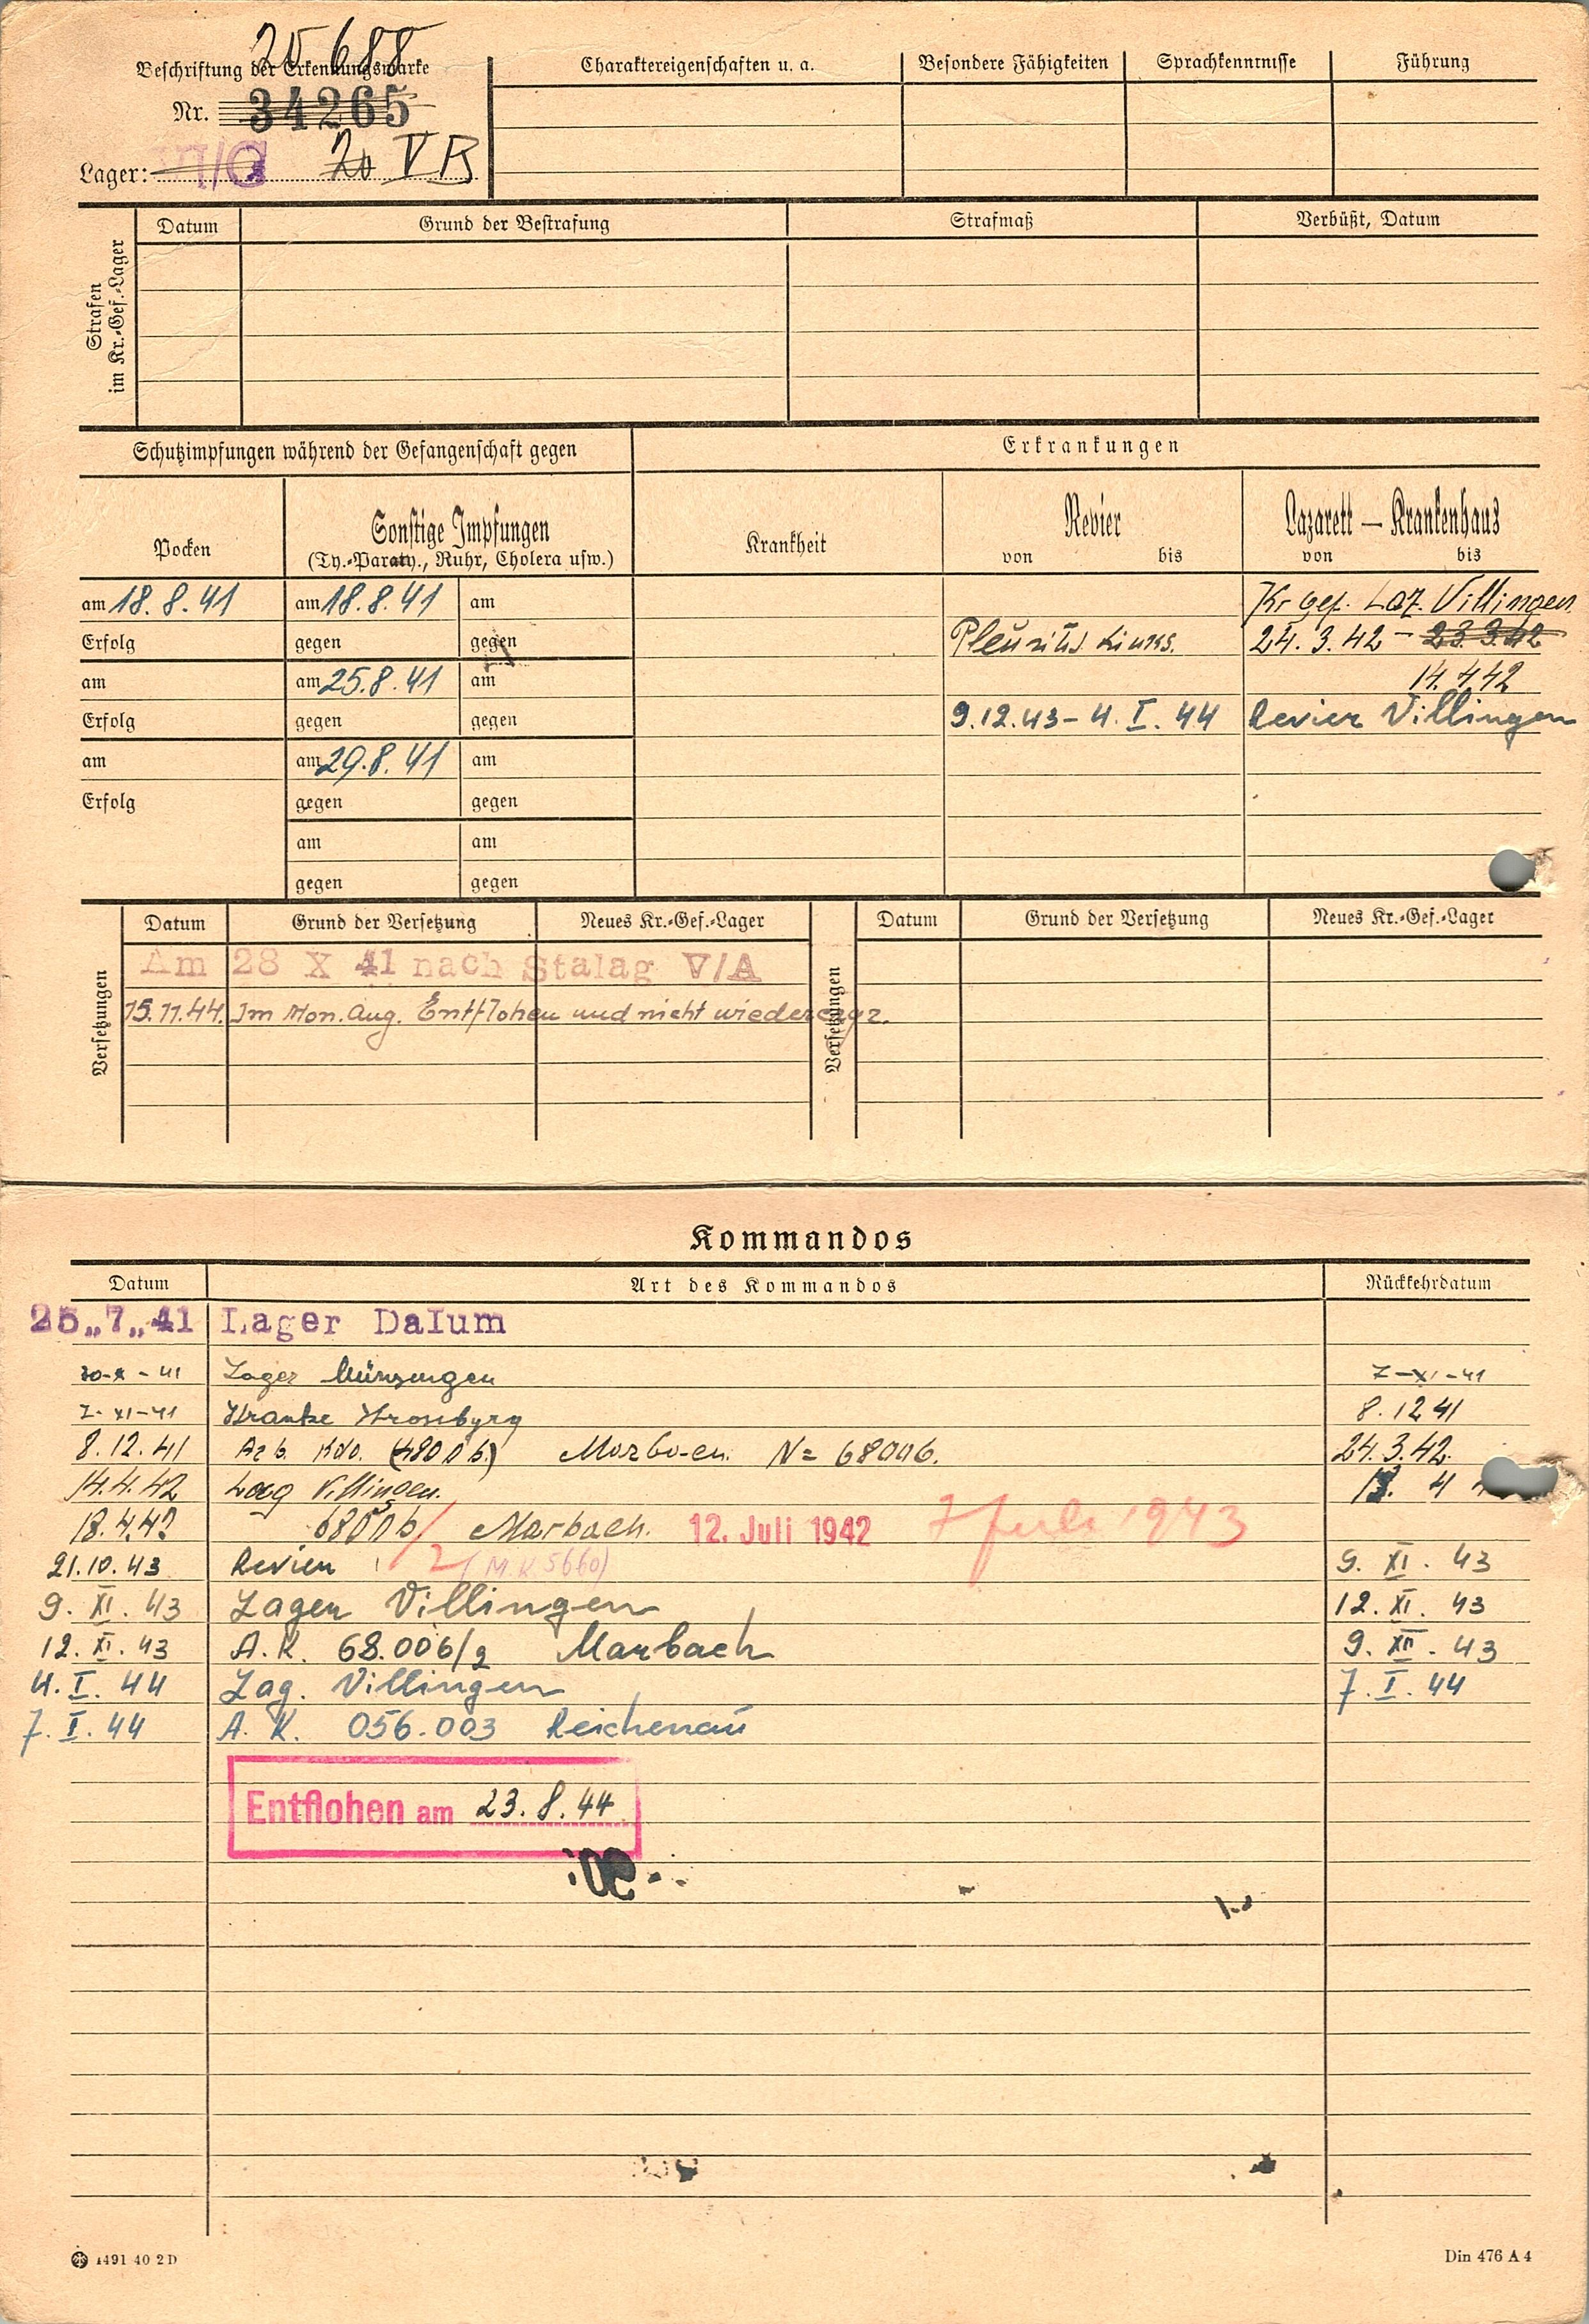 25688
Beschriftung der Erkennungsmarke
Nr. 34265
Lager: VI/C V B
Charaktereigenschaften u. a. Besondere Fähigkeiten Sprachkenntnisse Führung
Strafen im Kr.-Gef.-Lager
Datum Grund der Bestrafung Strafmaß Verbüßt, Datum
Schutzimpfungen während der Gefangenschaft gegen Erkrankungen
Pocken Sonstige Impfungen Krankheit Revier Lazarett — Krankenhaus
(Ty.-Paraty., Ruhr, Cholera usw.) von bis von bis
am 18.8.41 am 18.8.41 am Kr gef. Laz. Villingen
Erfolg gegen gegen Pleuritis links. 24.3.42 - 23.3.42
am am 25.8.41 am 14.4.42
Erfolg gegen gegen 9.12.43 - 4.I.44 Revier Villingen
am am 29.8.41 am
Erfolg gegen gegen
am am
gegen gegen
Versetzungen Datum Grund der Versetzung Neues Kr.-Gef.-Lager Versetzungen Datum Grund der Versetzung Neues Kr.-Gef.-Lager
Am 28 X 41 nach Stalag V/A
15.11.44. Im Mon. Aug. Entflohen und nicht wiederergr.
Kommandos
Datum Art des Kommandos Rückkehrdatum
25„7„41 Lager Dalum
30-X-41 Lager Münsingen 7-XI-41
7-XI-41 Kranke 8.12 41
8.12.41 Arb. Kdo. Nº 68006. 24.3.42.
14.4.42 Villingen. 4
18.4.42 Marbach. 12. Juli 1942 7 Juli 1943
21.10.43 Revier 2 (M.K 5660) 9. XI. 43
9. XI. 43 Lager Villingen 12. XI. 43
12. XI. 43 A.K. 68.006/2 Marbach 9. XII. 43
4. I. 44 Lag. Villingen 7. I. 44
7. I. 44 A.K. 056.003 Reichenau
Entflohen am 23.8.44
1491 40 2D Din 476 A 4